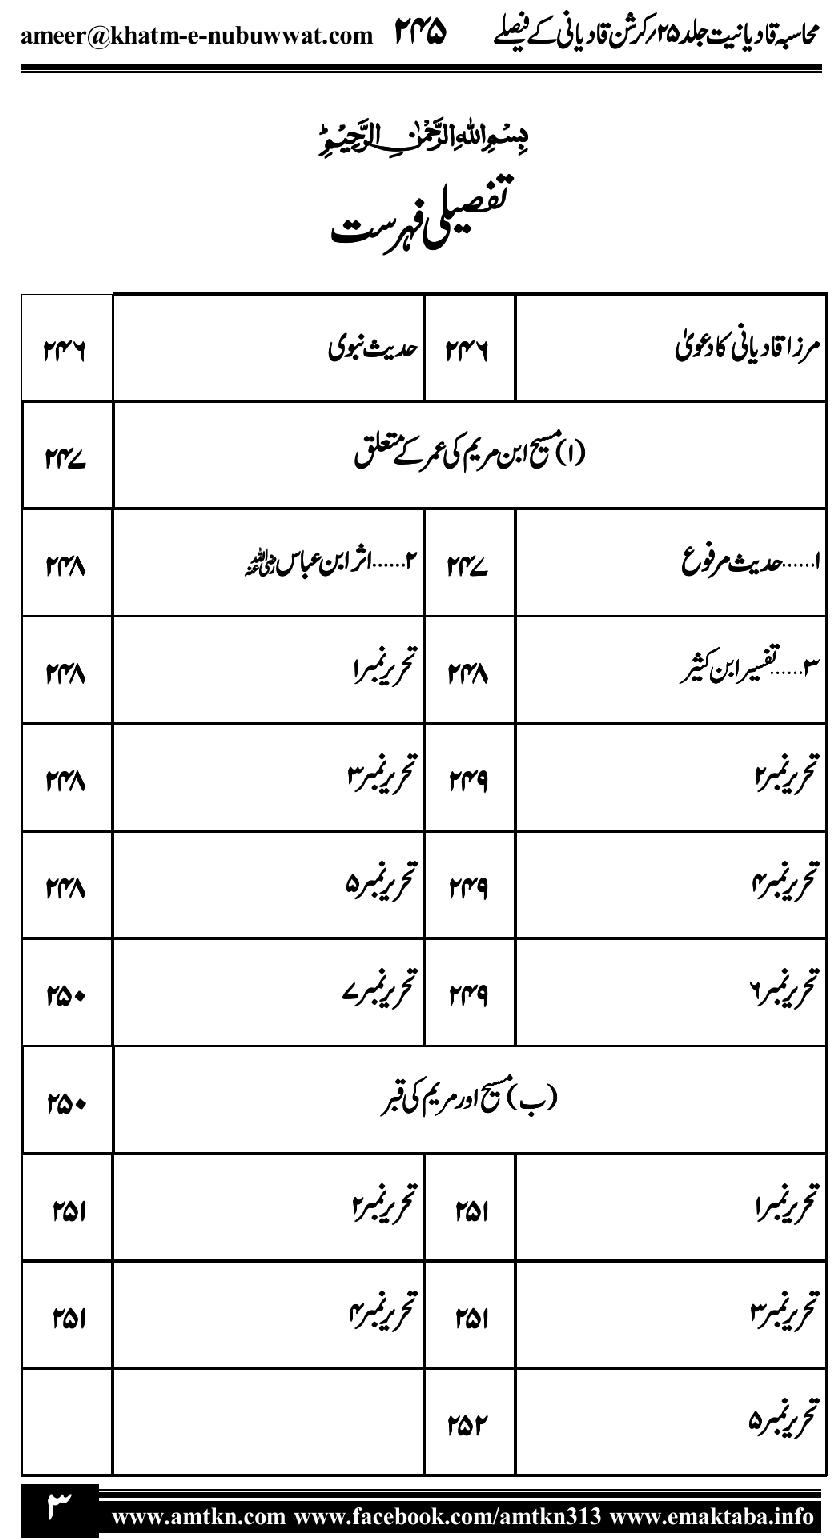 محاسبہ قادیانیت جلد ۲۵؍ کرشن قادیانی کے فیصلے ۲۴۵ ameer@khatm-e-nubuwwat.com
بسم اللہ الرحمٰن الرحیم
تفصیلی فہرست
مرزا قادیانی کا دعویٰ ۲۴۶ حدیث نبوی ۲۴۶
(ا) مسیح ابن مریم کی عمر کے متعلق ۲۴۷
۱......حدیث مرفوع ۲۴۷ ۲......اثر ابن عباس رضی اللہ عنہ ۲۴۸
۳......تفسیر ابن کثیر ۲۴۸ تحریر نمبر۱ ۲۴۸
تحریر نمبر۲ ۲۴۹ تحریر نمبر۳ ۲۴۸
تحریر نمبر۴ ۲۴۹ تحریر نمبر۵ ۲۴۸
تحریر نمبر۶ ۲۴۹ تحریر نمبر۷ ۲۵۰
(ب) مسیح اور مریم کی قبر ۲۵۰
تحریر نمبر۱ ۲۵۱ تحریر نمبر۲ ۲۵۱
تحریر نمبر۳ ۲۵۱ تحریر نمبر۴ ۲۵۱
تحریر نمبر۵ ۲۵۲
۳ www.amtkn.com www.facebook.com/amtkn313 www.emaktaba.info